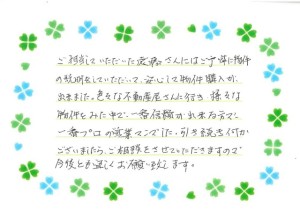 ご担当していただいた さんにはご丁寧に物件
の説明をしていただいて、安心して物件購入が
出来ました。色々な不動産屋さんに行き、様々な
物件をみた中で、一番信頼が出来る方で
一番プロの営業マンでした。引き続き何か
ございましたら、ご相談をさせていただきますので
今後とも宜しくお願い致します。